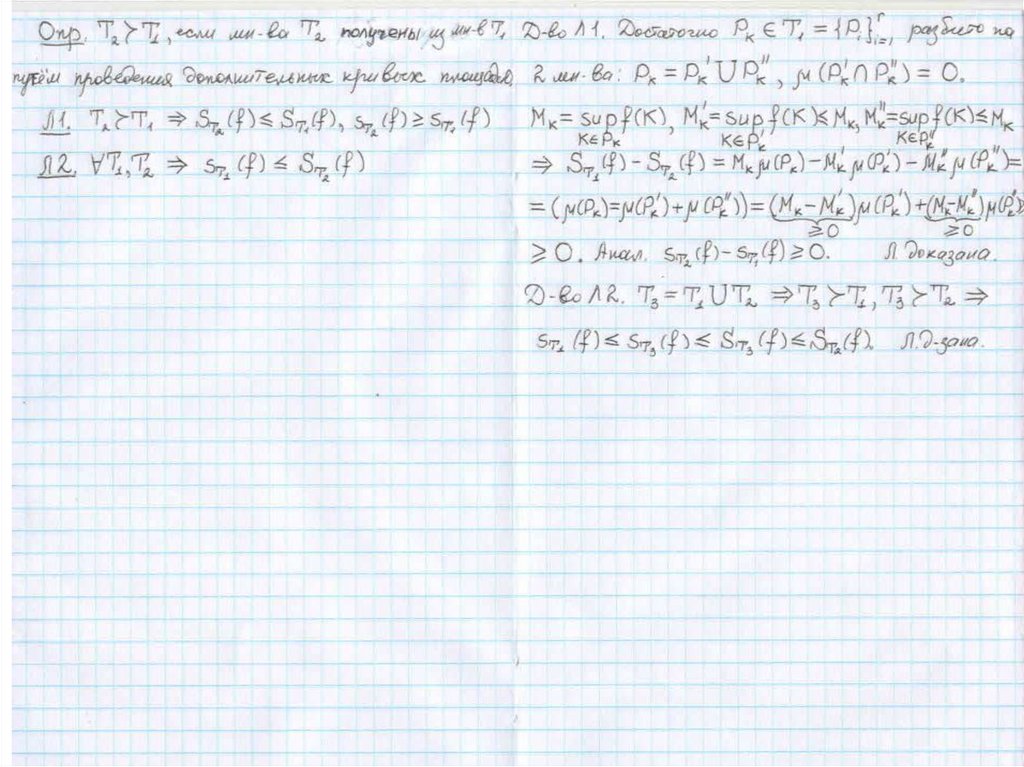 Опр. T₂≻T₁, если мн-ва T₂ получены из мн-в T₁
путём проведения дополнительных кривых площади
Л1. T₂≻T₁ ⇒ S_T₂(f) ≤ S_T₁(f), s_T₂(f) ≥ s_T₁(f)
Л2. ∀T₁,T₂ ⇒ s_T₁(f) ≤ S_T₂(f)
Д-во Л1. Достаточно P_K ∈ T₁ = {P_i}ʳ_i=1, разбито на
2 мн-ва: P_K = P_K' ⋃ P_K'', μ(P_K' ∩ P_K'') = 0.
M_K = sup f(K), M_K' = sup f(K) ≤ M_K, M_K'' = sup f(K) ≤ M_K
K∈P_K K∈P_K' K∈P_K''
⇒ S_T₁(f) - S_T₂(f) = M_K μ(P_K) - M_K' μ(P_K') - M_K'' μ(P_K'') =
= (μ(P_K) = μ(P_K') + μ(P_K'')) = (M_K - M_K')μ(P_K') + (M_K - M_K'')μ(P_K'')
≥0 ≥0
≥ 0. Анал. s_T₂(f) - s_T₁(f) ≥ 0. Л. доказана.
Д-во Л2. T₃ = T₁ ⋃ T₂ ⇒ T₃≻T₁, T₃≻T₂ ⇒
s_T₁(f) ≤ s_T₃(f) ≤ S_T₃(f) ≤ S_T₂(f). Л. д-зана.